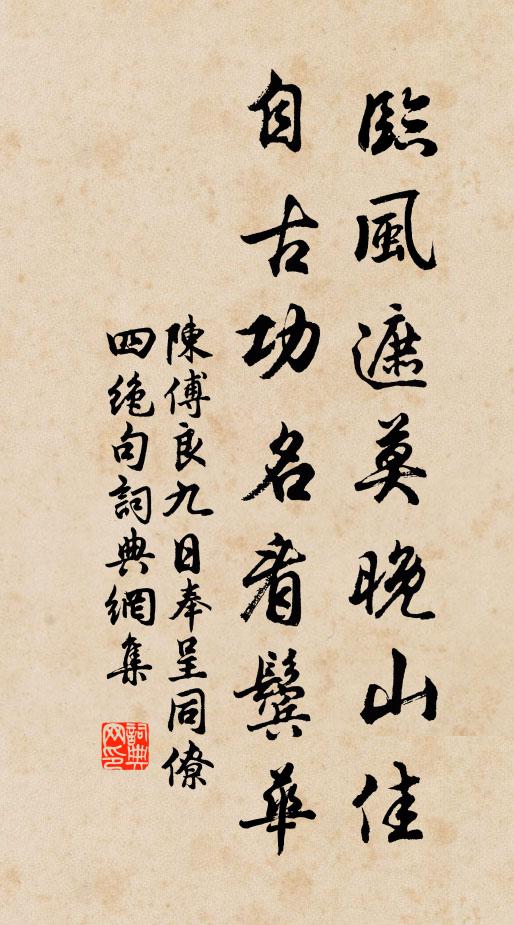 臨風遮莫晚山佳
自古功名看鬢華
陳傅良九日奉呈同僚
四絕句詞典網集
詞典網印